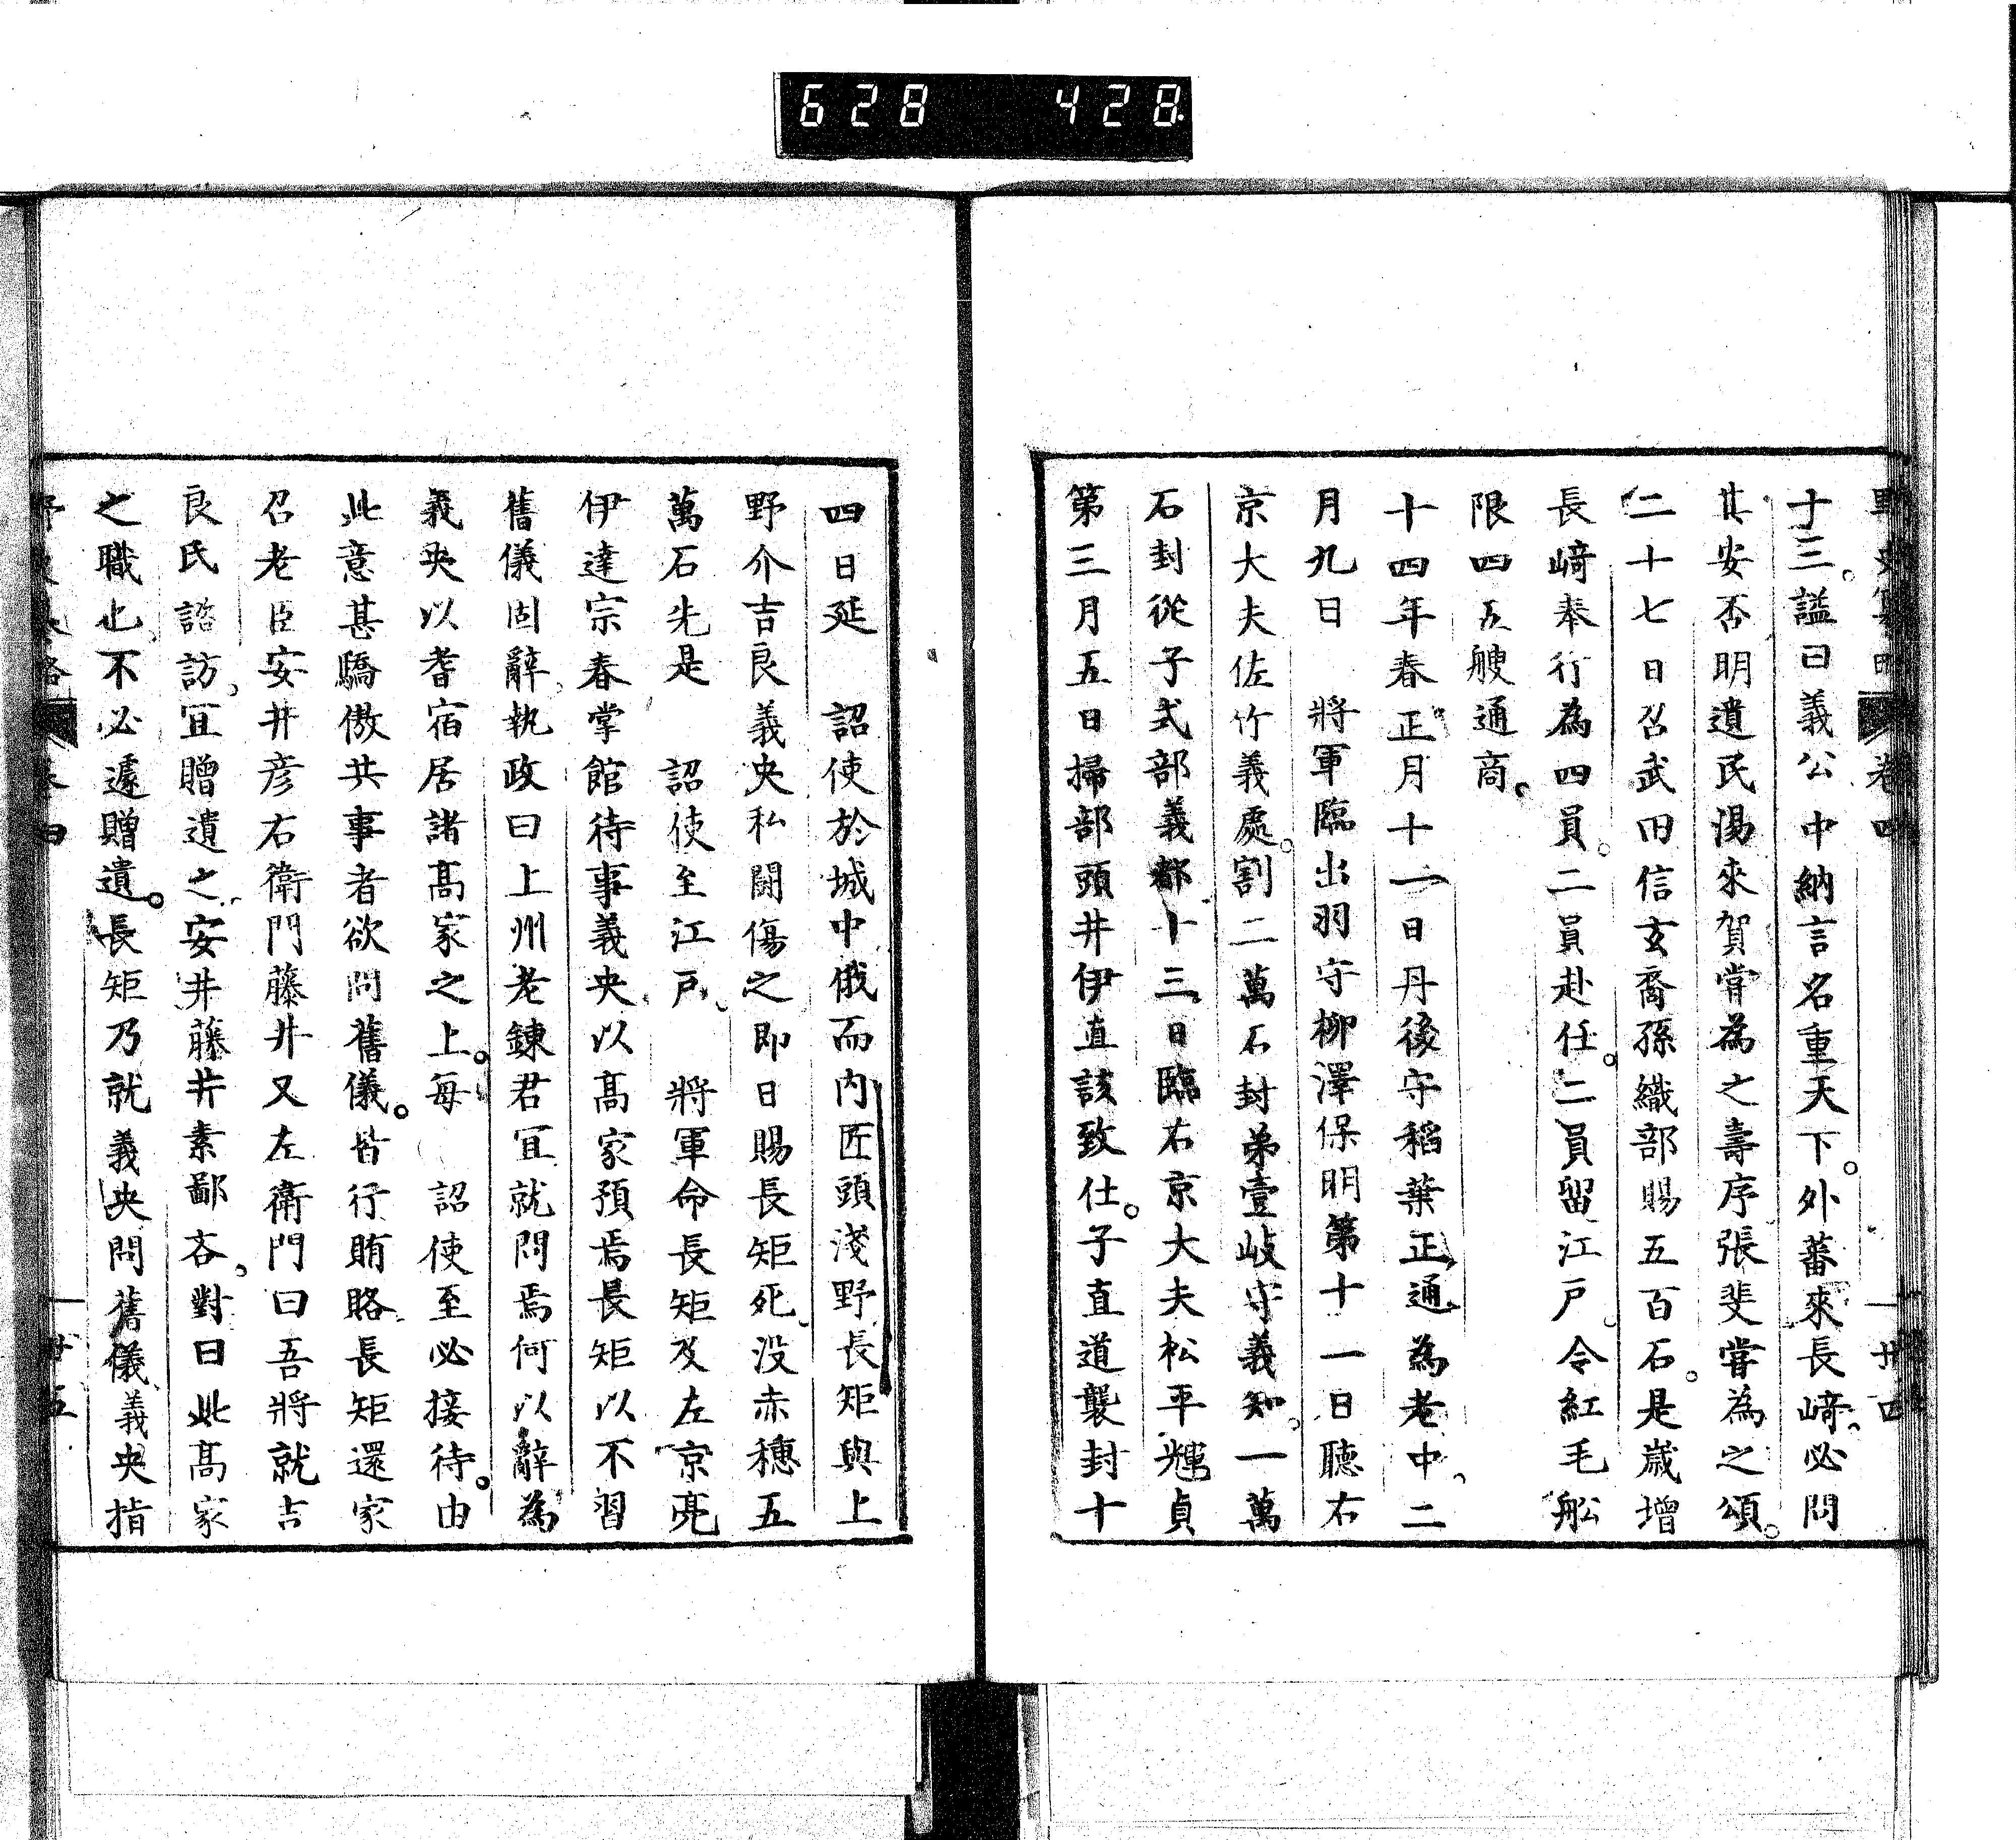 628 428
野史纂略 卷四 廿四
十三。謚曰義公中納言名重天下。外蕃來長﨑。必問
其安否明遺民湯來賀甞為之壽序張斐甞為之頌。
二十七日召武田信玄裔孫織部賜五百石。是歲增
長﨑奉行為四員。二員赴任。二員留江戸。令紅毛舩
限四五艘通商。
十四年春正月十一日丹後守稻葉正通為老中。二
月九日 將軍臨出羽守柳澤保明第十一日聽右
京大夫佐竹義處。割二萬石封弟壹岐守義知。一萬
石封從子式部義都十三日臨右京大夫松平輝貞
第三月五日掃部頭井伊直該致仕。子直道襲封十
四日延 詔使於城中俄而内匠頭淺野長矩與上
野介吉良義央私鬪傷之即日賜長矩死。没赤穗五
萬石先是 詔使至江戸。 將軍命長矩及左京亮
伊達宗春掌館待事義央以髙家預焉長矩以不習
舊儀固辭。執政曰上州老錬君宜就問焉何以辭為
義央以耆宿居諸髙家之上。每 詔使至必接待。由
此意甚驕傲共事者欲問舊儀。皆行賄賂。長矩還家
召老臣安井彦右衛門藤井又左衛門曰吾將就吉
良氏諮訪。宜贈遺之。安井藤井素鄙吝。對曰此髙家
之職也。不必遽贈遺。長矩乃就義央問舊儀義央指
野史纂略 卷四 廿五